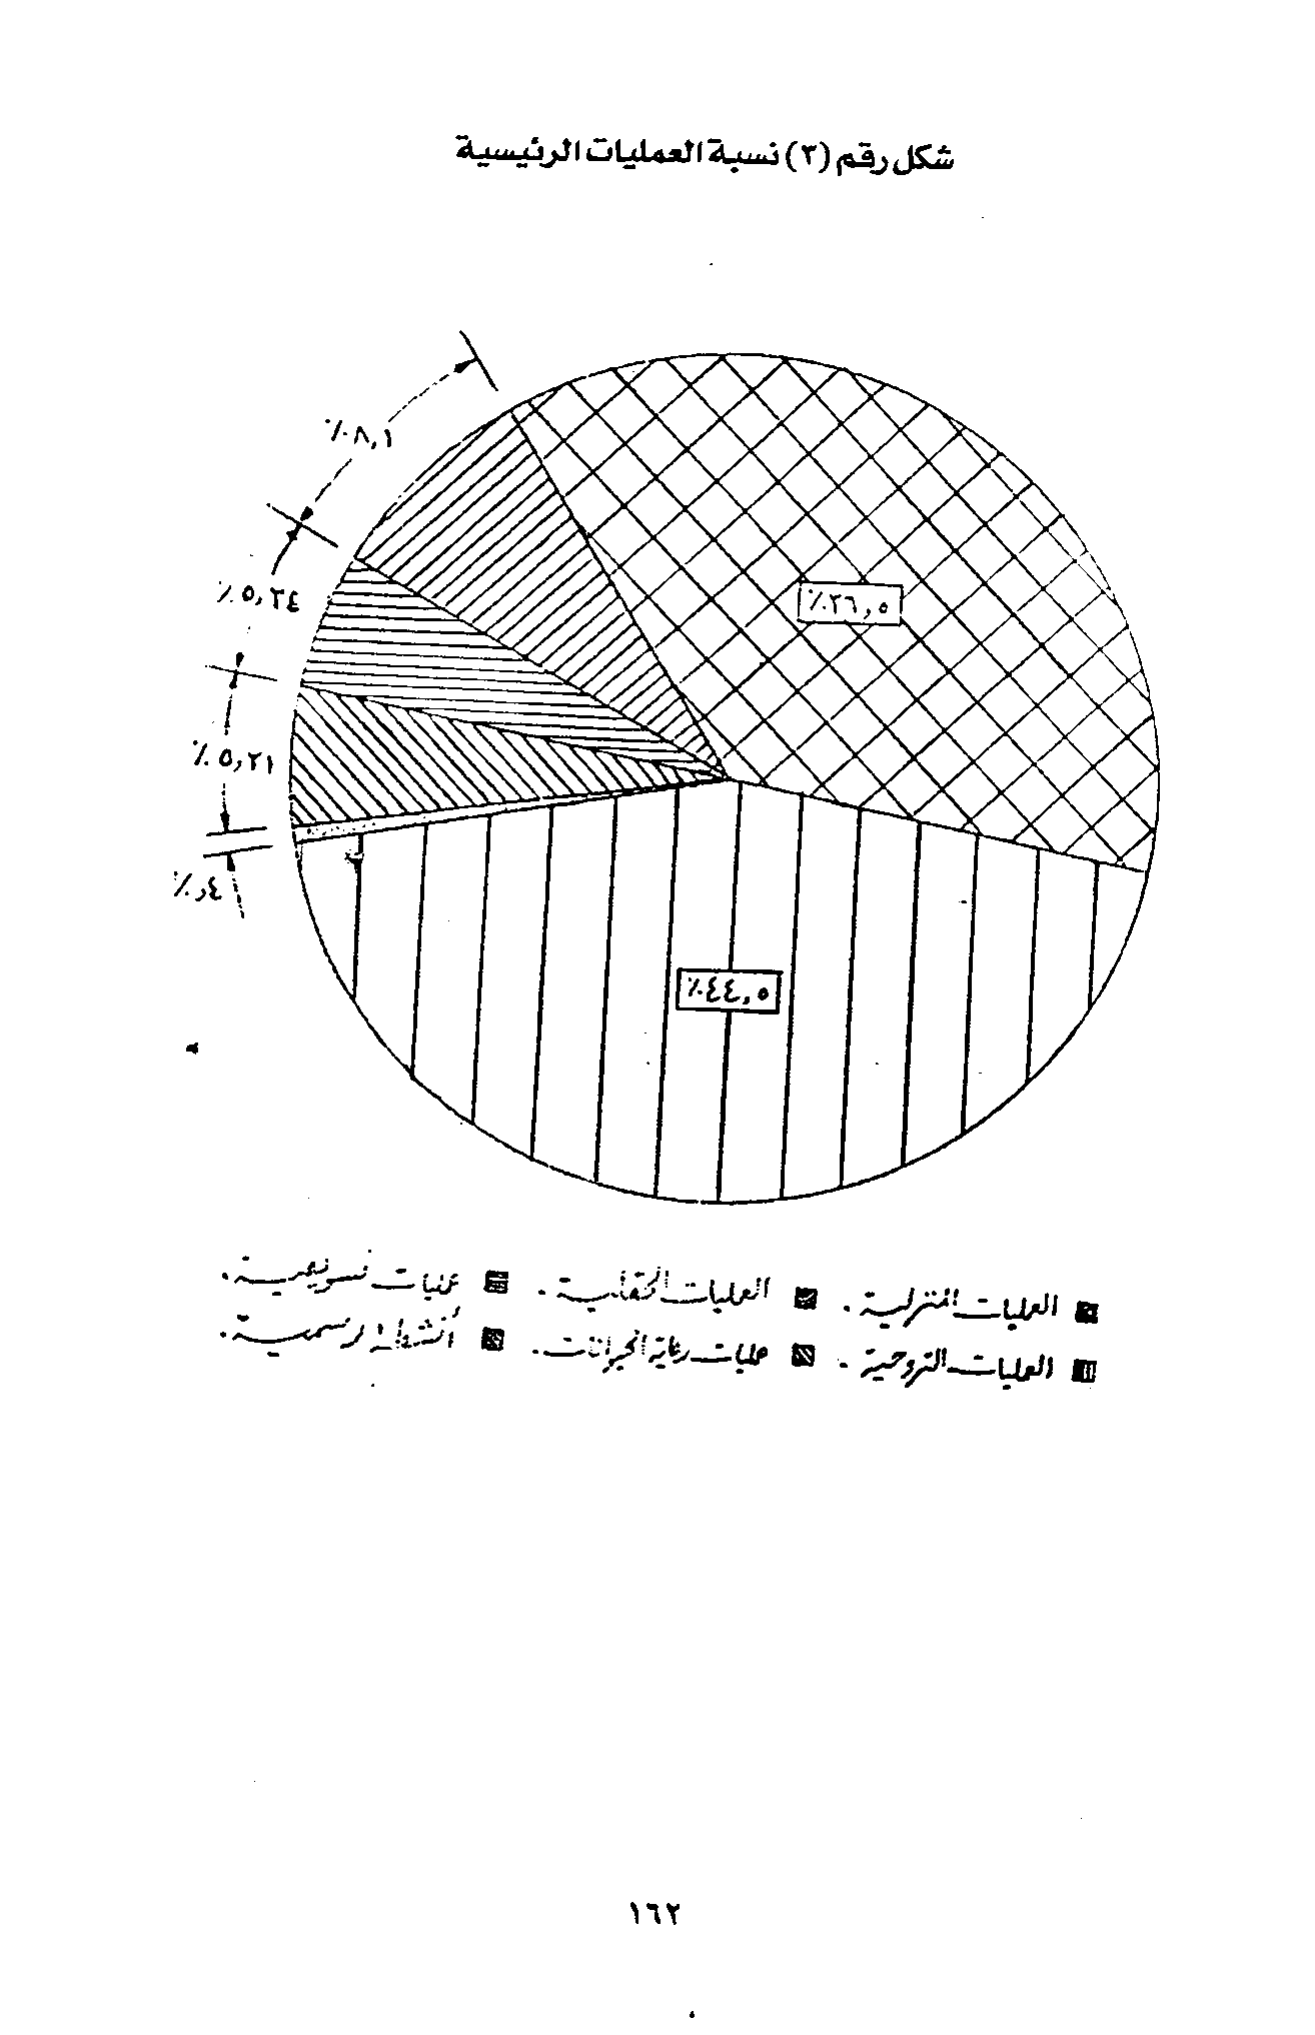 شكل رقم (٣) نسبة العمليات الرئيسية
٪٨,١
٪٥,٢٤
٪٣٦,٥
٪٥,٢١
٪,٤
٪٤٤,٥
العمليات المنزلية. العمليات الحقلية. عمليات تسويقية.
العمليات الترويحية. عمليات رعاية الحيوانات. أنشطة رسمية.
١٦٢